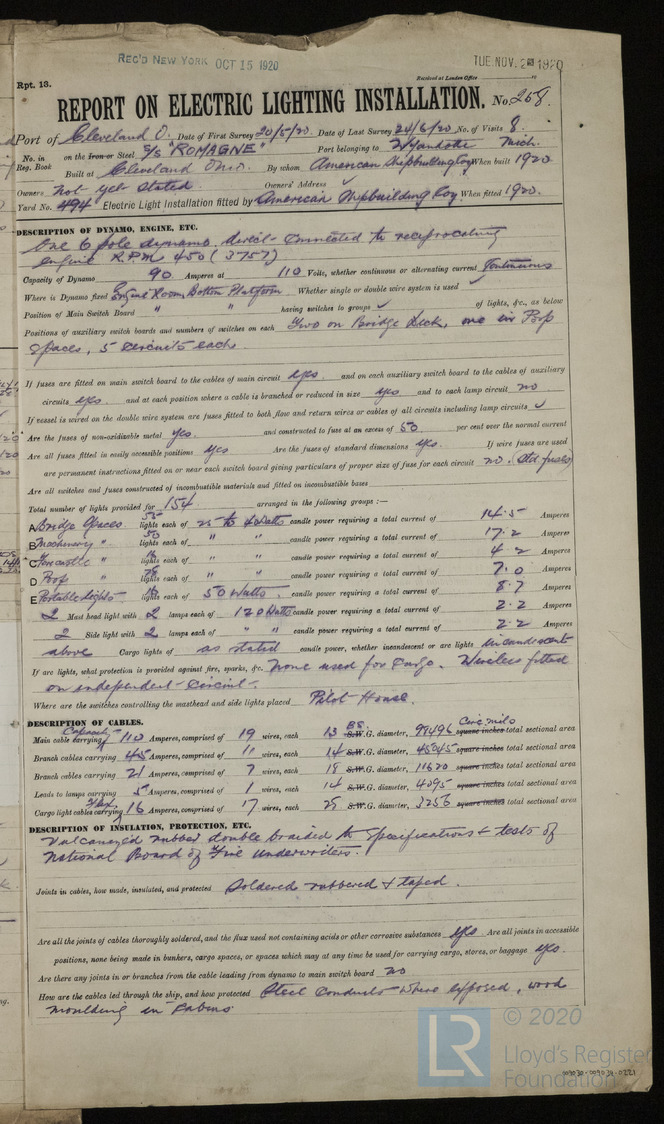 REC'D NEW YORK OCT 15 1920
TUE. NOV. 2 1920
Received at London Office
Rpt. 13.
REPORT ON ELECTRIC LIGHTING INSTALLATION. No. 258.
Port of Cleveland O. Date of First Survey 20/5/20. Date of Last Survey 24/6/20. No. of Visits 8.
No. in on the Iron or Steel S/S "ROMAGNE" Port belonging to Wyandotte Mich.
Reg. Book Built at Cleveland Ohio. By whom American Shipbuilding Coy When built 1920
Owners Not yet stated. Owners' Address
Yard No. 494 Electric Light Installation fitted by American Shipbuilding Coy. When fitted 1920.
DESCRIPTION OF DYNAMO, ENGINE, ETC.
One 6 pole dynamo, direct-connected to reciprocating
engine R.P.M. 450 (3757)
Capacity of Dynamo 90 Amperes at 110 Volts, whether continuous or alternating current Continuous
Where is Dynamo fixed Engine Room Bottom Platform Whether single or double wire system is used
Position of Main Switch Board " " having switches to groups of lights, &c., as below
Positions of auxiliary switch boards and numbers of switches on each Two on Bridge Deck, one in Poop
spaces, 5 circuits each.
If fuses are fitted on main switch board to the cables of main circuit yes and on each auxiliary switch board to the cables of auxiliary
circuits yes. and at each position where a cable is branched or reduced in size yes and to each lamp circuit no
If vessel is wired on the double wire system are fuses fitted to both flow and return wires or cables of all circuits including lamp circuits
Are the fuses of non-oxidizable metal yes. and constructed to fuse at an excess of 50 per cent over the normal current
Are all fuses fitted in easily accessible positions yes Are the fuses of standard dimensions yes. If wire fuses are used
are permanent instructions fitted on or near each switch board giving particulars of proper size of fuse for each circuit no. Std. fuses
Are all switches and fuses constructed of incombustible materials and fitted on incombustible bases
Total number of lights provided for 154. arranged in the following groups :—
A Bridge Spaces 55 lights each of 25 to 40 Watts candle power requiring a total current of 14.5 Amperes
B Machinery " 50 lights each of " " candle power requiring a total current of 17.2 Amperes
C Forecastle " lights each of " " candle power requiring a total current of 4.2 Amperes
D Poop " lights each of " " candle power requiring a total current of 7.0 Amperes
E Portable Lights lights each of 50 Watts. candle power requiring a total current of 8.7 Amperes
2 Mast head light with 2 lamps each of 120 Watts candle power requiring a total current of 2.2 Amperes
2 Side light with 2 lamps each of " " candle power requiring a total current of 2.2 Amperes
above Cargo lights of as stated candle power, whether incandescent or arc lights incandescent
If arc lights, what protection is provided against fire, sparks, &c. None used for cargo. Wireless fitted
on independent circuit.
Where are the switches controlling the masthead and side lights placed Pilot House.
DESCRIPTION OF CABLES.
Capacity BS. Circ. mils
Main cable carrying 110 Amperes, comprised of 19 wires, each 13 S.W.G. diameter, 98496 square inches total sectional area
Branch cables carrying 45 Amperes, comprised of 11 wires, each 14 S.W.G. diameter, 45045 square inches total sectional area
Branch cables carrying 21 Amperes, comprised of 7 wires, each 18 S.W.G. diameter, 11620 square inches total sectional area
Leads to lamps carrying 5 Amperes, comprised of 1 wires, each 14 S.W.G. diameter, 4095 square inches total sectional area
Flex.
Cargo light cables carrying 16 Amperes, comprised of 17 wires, each 25 S.W.G. diameter, 3256 square inches total sectional area
DESCRIPTION OF INSULATION, PROTECTION, ETC.
Vulcanized rubber double braided to specifications & tests of
National Board of Fire Underwriters.
Joints in cables, how made, insulated, and protected Soldered rubbered & taped.
Are all the joints of cables thoroughly soldered, and the flux used not containing acids or other corrosive substances yes. Are all joints in accessible
positions, none being made in bunkers, cargo spaces, or spaces which may at any time be used for carrying cargo, stores, or baggage yes.
Are there any joints in or branches from the cable leading from dynamo to main switch board no
How are the cables led through the ship, and how protected Steel conduits where exposed, wood
moulding in cabins.
LR
© 2020
Lloyd's Register
Foundation
009030-009039-0221